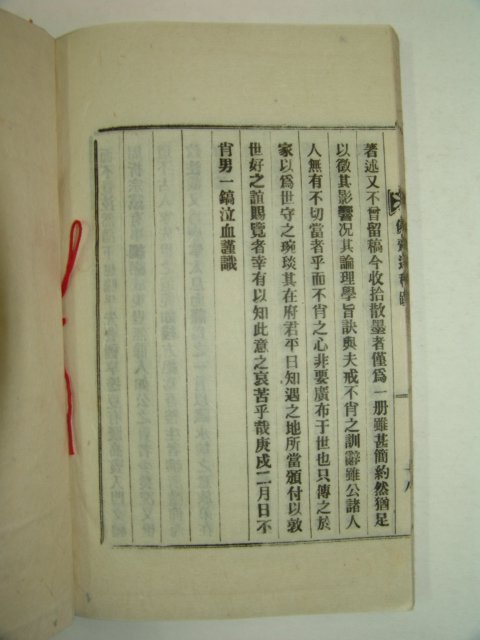 著述又不曾留稿今收拾散墨者僅爲一册雖甚簡約然猶足
以徵其影響况其論理學旨訣與夫戒不肖之訓辭雖公諸人
人無有不切當者乎而不肖之心非要廣布于世也只傳之於
家以爲世守之琬琰其在府君平日知遇之地所當頒付以敦
世好之誼賜覽者幸有以知此意之哀苦乎哉庚戌二月日不
肖男一鎬泣血謹識